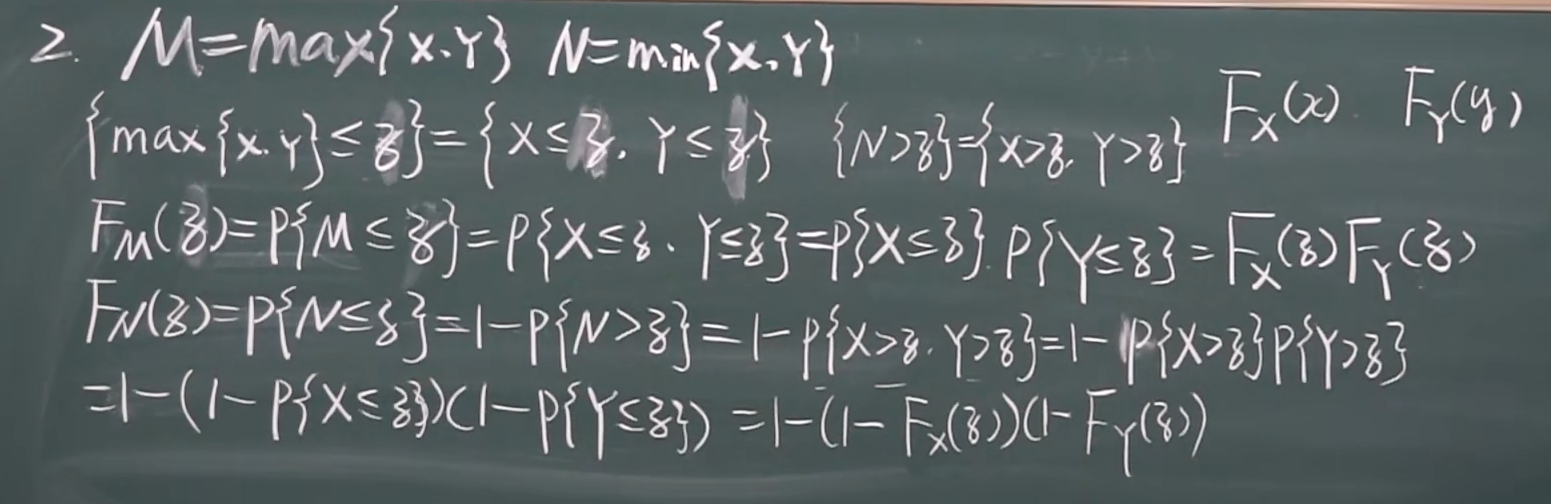 2. M=max{X.Y} N=min{X.Y}
F_X(x) F_Y(y)
{max{X.Y}≤z}={X≤z. Y≤z} {N>z}={X>z. Y>z}
F_M(z)=P{M≤z}=P{X≤z. Y≤z}=P{X≤z}.P{Y≤z}=F_X(z)F_Y(z)
F_N(z)=P{N≤z}=1-P{N>z}=1-P{X>z. Y>z}=1-P{X>z}P{Y>z}
=1-(1-P{X≤z})(1-P{Y≤z})=1-(1-F_X(z))(1-F_Y(z))